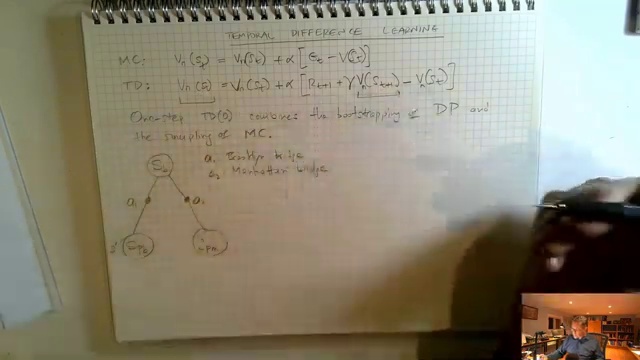 TEMPORAL DIFFERENCE LEARNING
MC: Vπ(St) = Vπ(St) + α [Gt − V(St)]
TD: Vπ(St) = Vπ(St) + α [Rt+1 + γVπ(St+1) − Vπ(St)]
One-step TD(0) combines the bootstrapping of DP and
the sampling of MC.
a1 Brooklyn bridge
a2 Manhattan bridge
a1
a2
s'